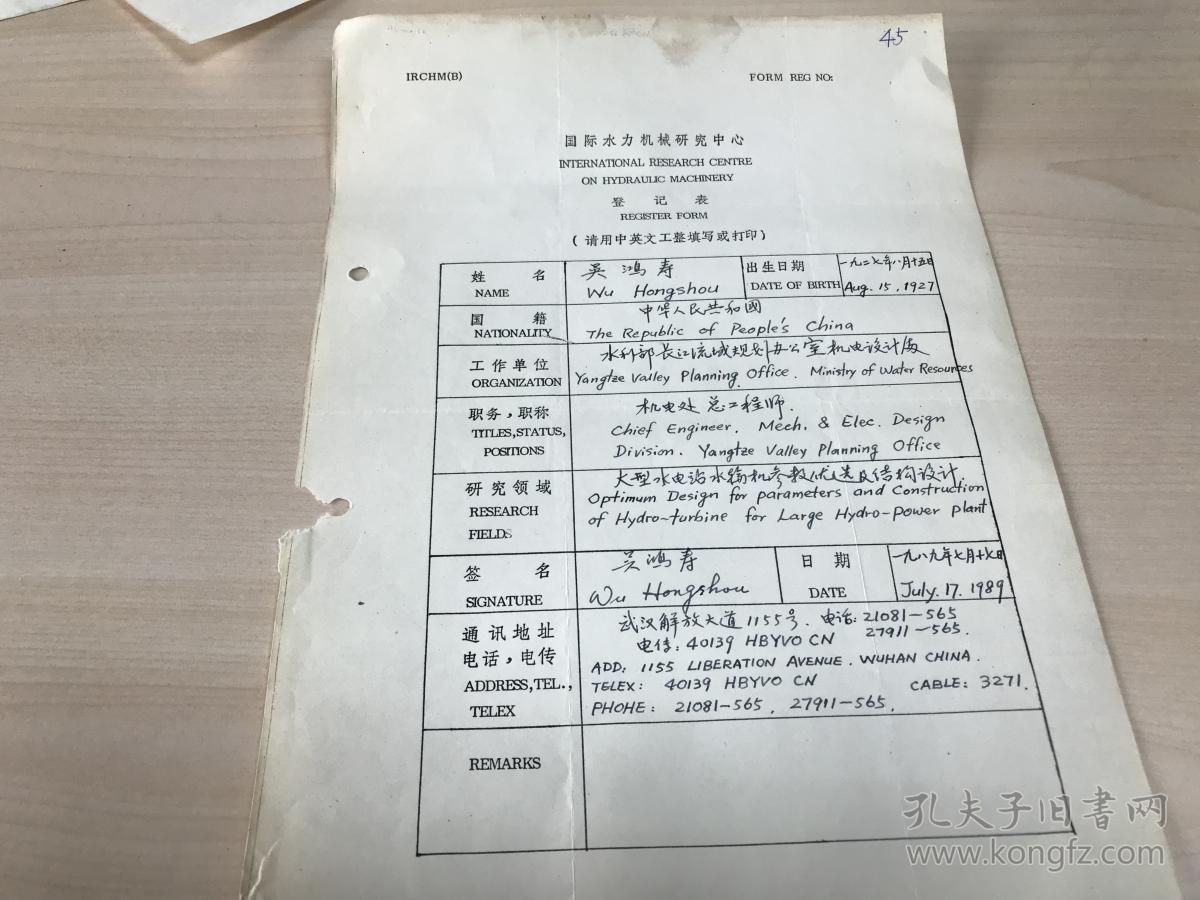 45
IRCHM(B) FORM REG NO:
国际水力机械研究中心
INTERNATIONAL RESEARCH CENTRE
ON HYDRAULIC MACHINERY
登 记 表
REGISTER FORM
(请用中英文工整填写或打印)
姓 名 吴鸿寿 出生日期 一九二七年八月十五日
NAME Wu Hongshou DATE OF BIRTH Aug. 15, 1927
国 籍 中华人民共和國
NATIONALITY The Republic of People's China
工作单位 水利部长江流域规划办公室机电设计处
ORGANIZATION Yangtze Valley Planning Office. Ministry of Water Resources
职务,职称 机电处总工程师.
TITLES,STATUS, Chief Engineer. Mech. & Elec. Design
POSITIONS Division. Yangtze Valley Planning Office
研究领域 大型水电站水输机参数优选及结构设计.
RESEARCH Optimum Design for parameters and Construction
FIELDS of Hydro-turbine for Large Hydro-power plant
签 名 吴鸿寿 日 期 一九八九年七月十七日
SIGNATURE Wu Hongshou DATE July. 17. 1989
通讯地址 武汉解放大道1155号. 电话: 21081-565
电话,电传 电传: 40139 HBYVO CN 27911-565.
ADDRESS,TEL., ADD: 1155 LIBERATION AVENUE. WUHAN CHINA.
TELEX TELEX: 40139 HBYVO CN CABLE: 3271.
PHOHE: 21081-565, 27911-565.
REMARKS
孔夫子旧书网
www.kongfz.com